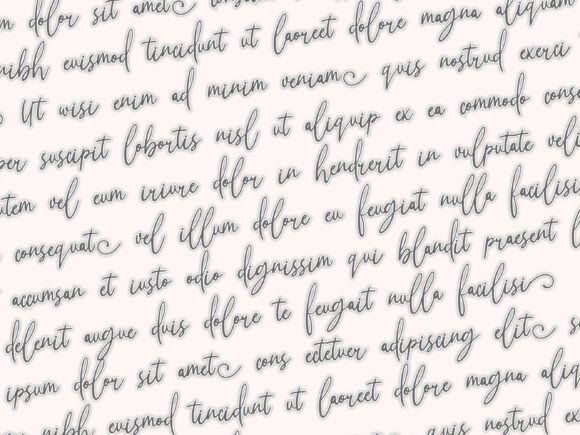 m dolor sit amet consec
nibh euismod tincidunt ut laoreet dolore magna aliquam
Ut wisi enim ad minim veniam quis nostrud exerci
per suscipit lobortis nisl ut aliquip ex ea commodo conse
utem vel eum iriure dolor in hendrerit in vulputate veli
consequat vel illum dolore eu feugiat nulla facilisi
accumsan et iusto odio dignissim qui blandit praesent l
delenit augue duis dolore te feugait nulla facilisi
ipsum dolor sit amet cons ectetuer adipiscing elit s
nibh euismod tincidunt ut laoreet dolore magna aliq
quis nostrud ex